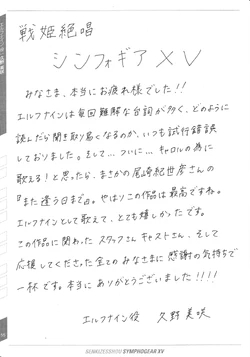 戦姫絶唱
シンフォギアXV
みなさま、本当にお疲れ様でした!!
エルフナインは毎回難解な台詞が多く、どのように
読んだら聞き取り易くなるのか、いつも試行錯誤
しておりました。そして…ついに…キャロルの為に
歌える!と思ったら、まさかの尾崎紀世彦さんの
『また逢う日まで』。やはりこの作品は最高ですね。
エルフナインとして歌えて、とても嬉しかったです。
この作品に関わったスタッフさん キャストさん、そして
応援してくださった全てのみなさまに感謝の気持ちで
一杯です。本当にありがとうございました!!!!
エルフナイン役 久野美咲
SENKIZESSHOU SYMPHOGEAR XV